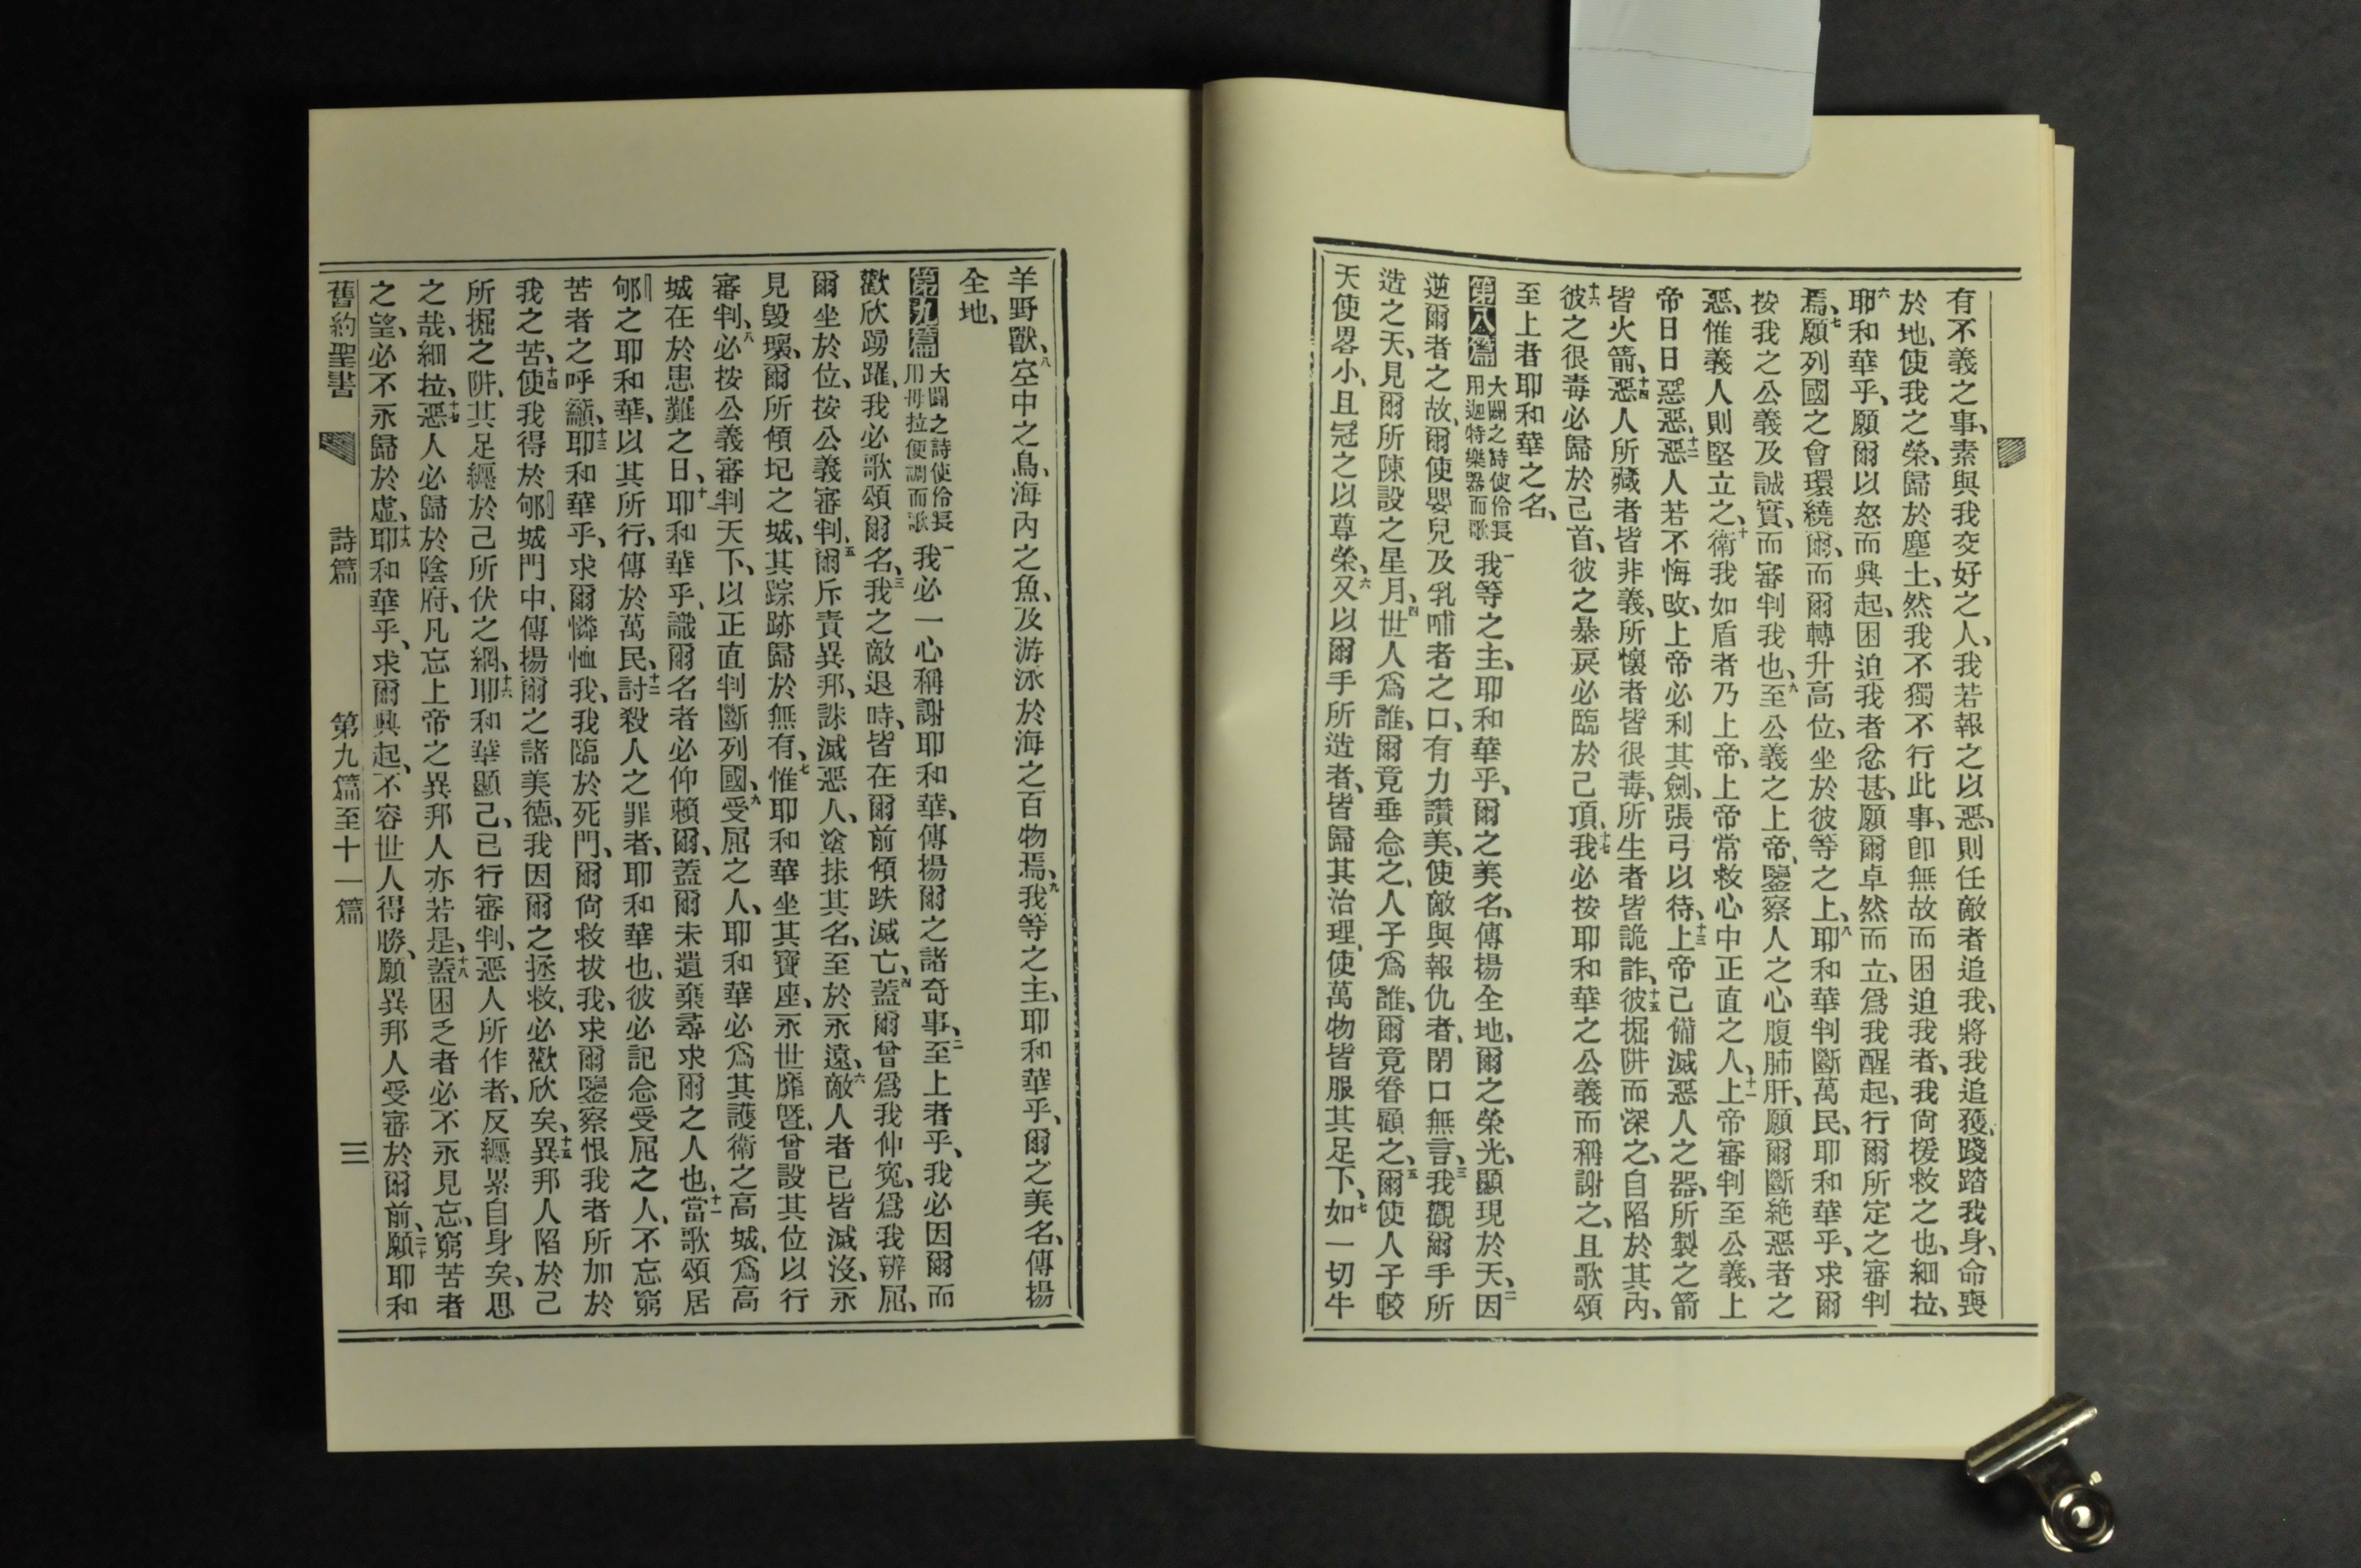 有不義之事、素與我交好之人、我若報之以惡、則任敵者追我、將我追獲、踐踏我身、命喪
於地、使我之榮、歸於塵土、然我不獨不行此事、卽無故而困迫我者、我尙援救之也、細拉、
六耶和華乎、願爾以怒而興起、困迫我者忿甚、願爾卓然而立、爲我醒起、行爾所定之審判
焉、七願列國之會環繞爾、而爾轉升高位、坐於彼等之上、八耶和華判斷萬民、耶和華乎、求爾
按我之公義及誠實、而審判我也、九至公義之上帝、鑒察人之心腹肺肝、願爾斷絶惡者之
惡、惟義人則堅立之、十衛我如盾者乃上帝、上帝常救心中正直之人、十一上帝審判至公義、上
帝日日惡惡、十二惡人若不悔改、上帝必利其劍、張弓以待、十三上帝己備滅惡人之器、所製之箭
皆火箭、十四惡人所藏者皆非義、所懷者皆很毒、所生者皆詭詐、十五彼掘阱而深之、自陷於其內、
十六彼之很毒必歸於己首、彼之暴戾必臨於己頂、十七我必按耶和華之公義而稱謝之、且歌頌
至上者耶和華之名、
第八篇 大闢之詩使伶長用迦特樂器而歌 一我等之主、耶和華乎、爾之美名、傳揚全地、爾之榮光、顯現於天、二因
逆爾者之故、爾使嬰兒及乳哺者之口、有力讚美、使敵與報仇者、閉口無言、三我觀爾手所
造之天、見爾所陳設之星月、四世人爲誰、爾竟垂念之、人子爲誰、爾竟眷顧之、五爾使人子較
天使畧小、且冠之以尊榮、六又以爾手所造者、皆歸其治理、使萬物皆服其足下、七如一切牛
羊野獸、八空中之鳥、海內之魚、及游泳於海之百物焉、九我等之主、耶和華乎、爾之美名、傳揚
全地、
第九篇 大闢之詩使伶長用母拉便調而歌 一我必一心稱謝耶和華、傳揚爾之諸奇事、二至上者乎、我必因爾而
歡欣踴躍、我必歌頌爾名、三我之敵退時、皆在爾前傾跌滅亡、四蓋爾曾爲我伸寃、爲我辨屈、
爾坐於位、按公義審判、五爾斥責異邦、誅滅惡人、塗抹其名、至於永遠、六敵人者已皆滅沒、永
見毀壞、爾所傾圮之城、其踪跡歸於無有、七惟耶和華坐其寶座、永世靡曁、曾設其位以行
審判、八必按公義審判天下、以正直判斷列國、九受屈之人、耶和華必爲其護衛之高城、爲高
城在於患難之日、十耶和華乎、識爾名者必仰賴爾、蓋爾未遺棄尋求爾之人也、十一當歌頌居
郇之耶和華、以其所行、傳於萬民、十二討殺人之罪者、耶和華也、彼必記念受屈之人、不忘窮
苦者之呼籲、十三耶和華乎、求爾憐恤我、我臨於死門、爾尙救拔我、求爾鑒察恨我者所加於
我之苦、十四使我得於郇城門中、傳揚爾之諸美德、我因爾之拯救、必歡欣矣、十五異邦人陷於己
所掘之阱、其足纒於己所伏之網、十六耶和華顯己、已行審判、惡人所作者、反纒累自身矣、思
之哉、細拉、十七惡人必歸於陰府、凡忘上帝之異邦人亦若是、十八蓋困乏者必不永見忘、窮苦者
之望、必不永歸於虛、十九耶和華乎、求爾興起、不容世人得勝、願異邦人受審於爾前、二十願耶和
舊約聖書 詩篇 第九篇至十一篇 三